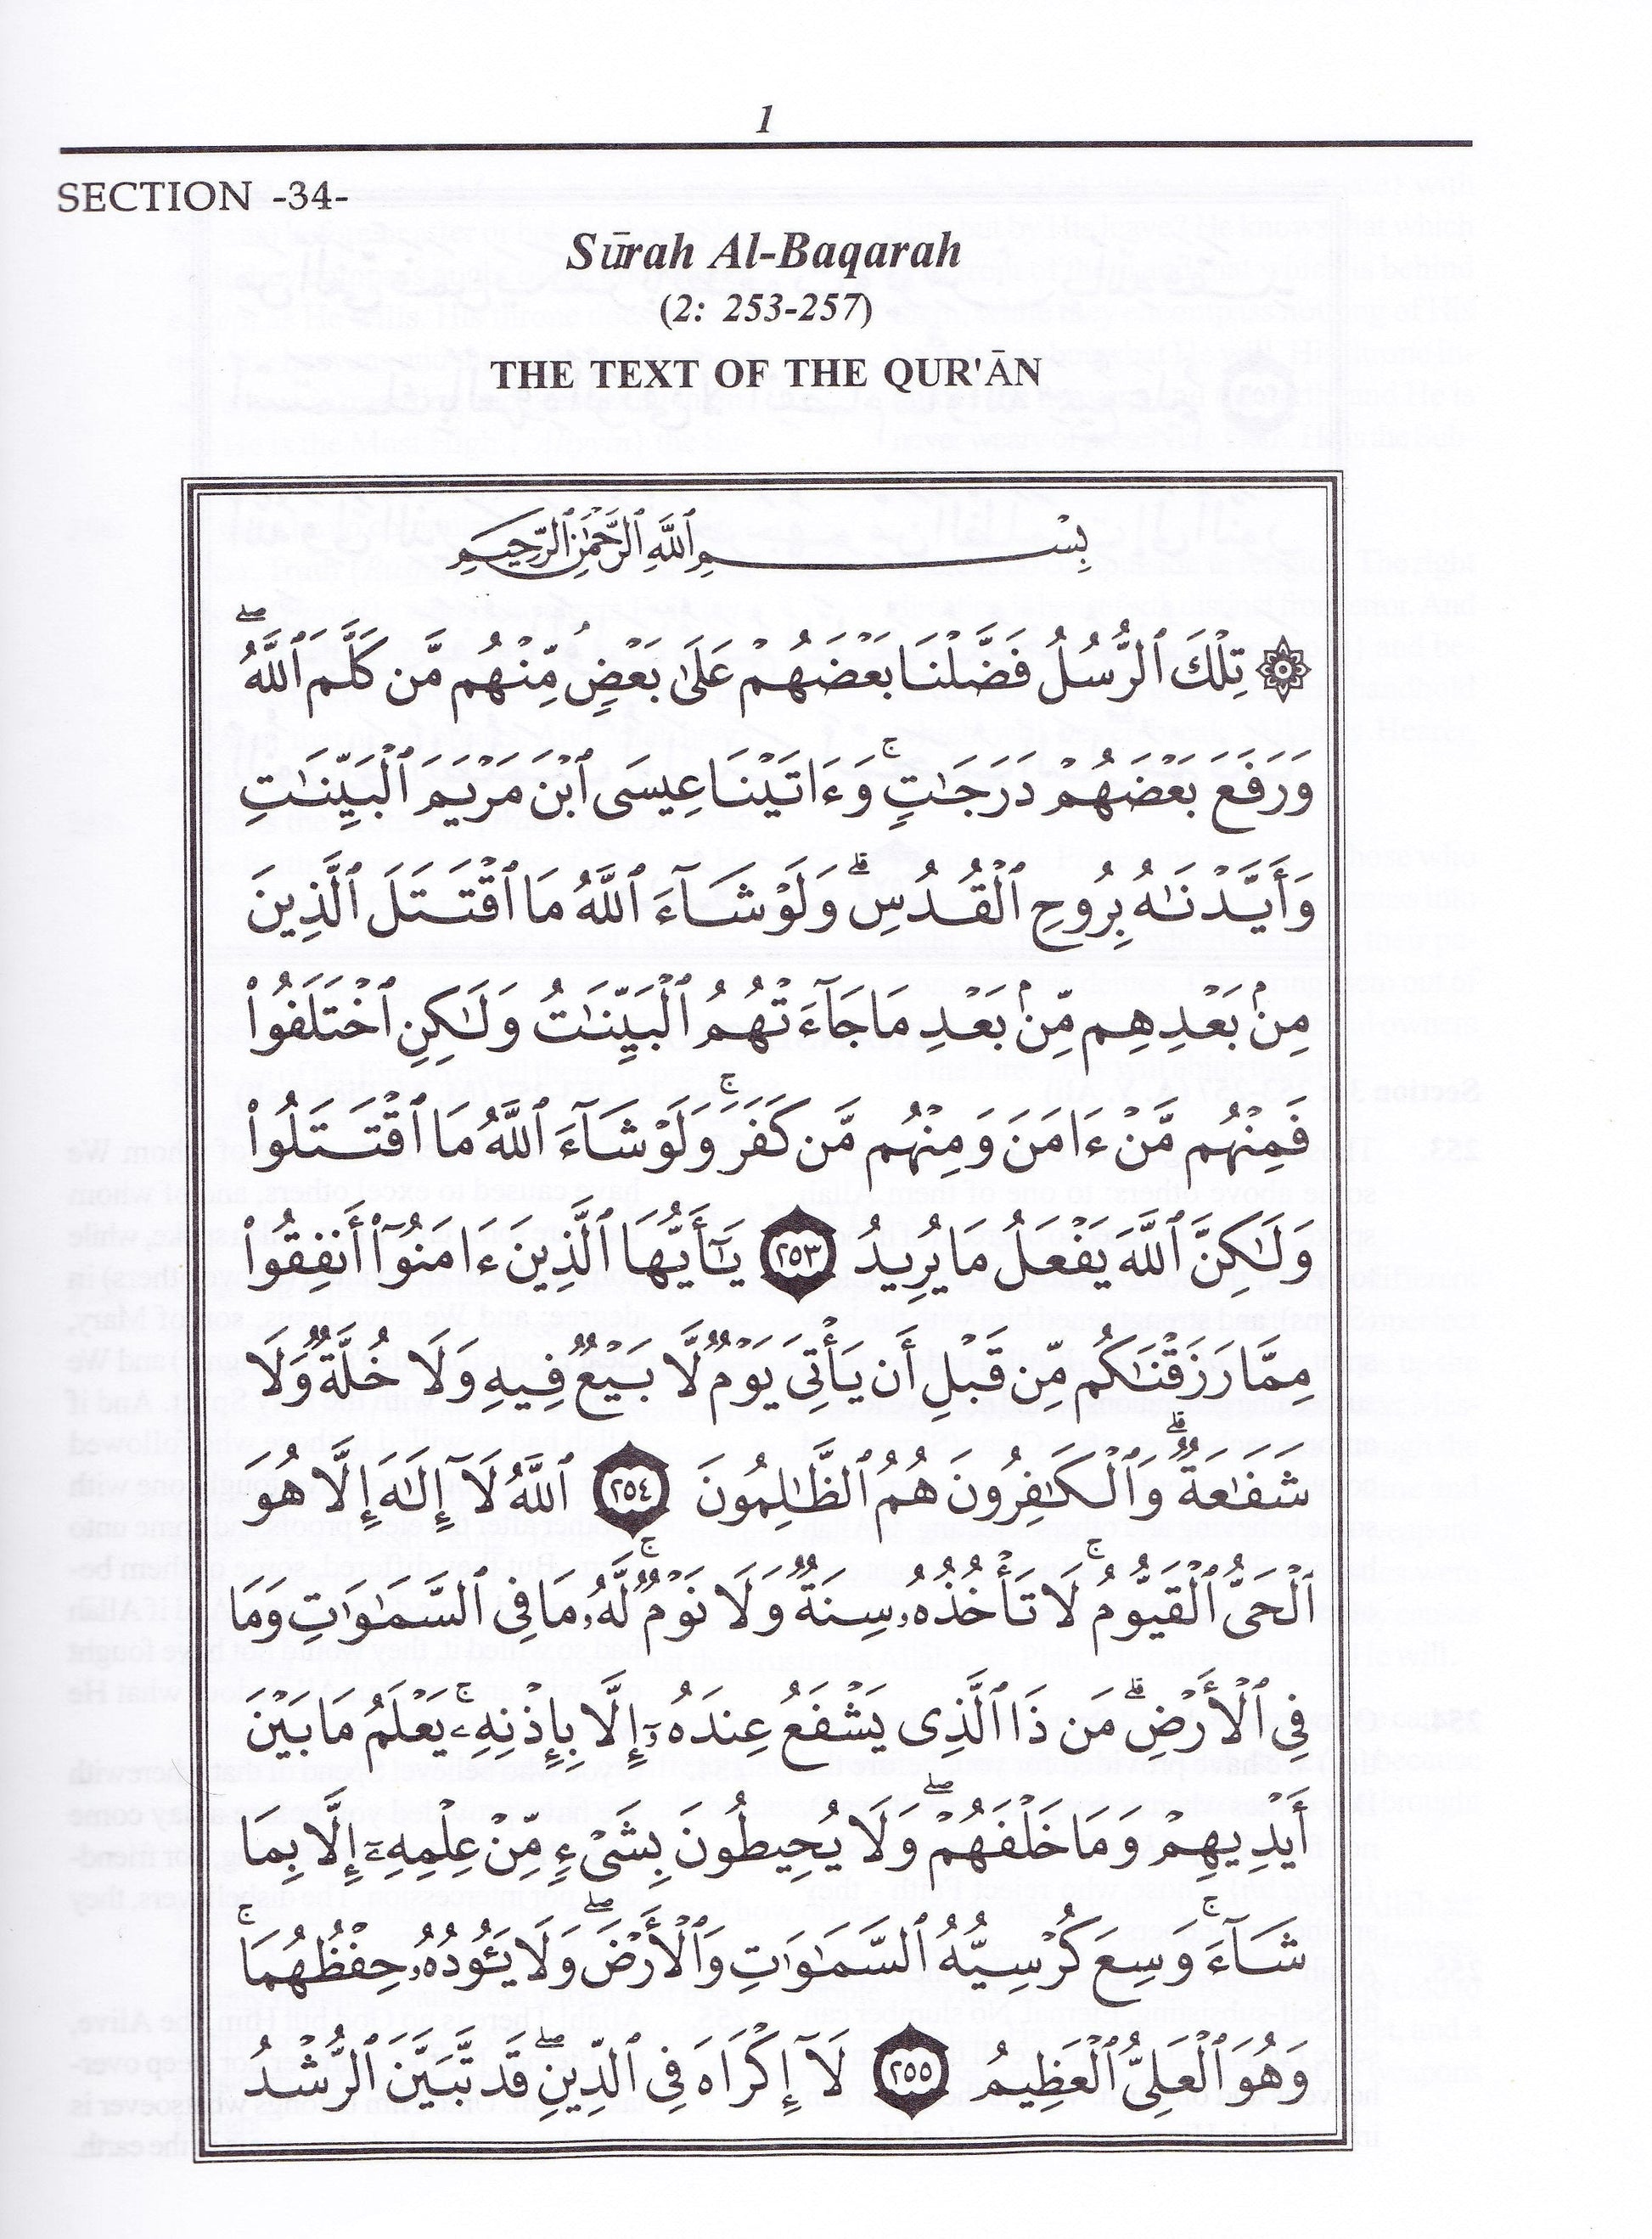 1
SECTION -34-
Sūrah Al-Baqarah
(2: 253-257)
THE TEXT OF THE QUR'ĀN
بِسْمِ ٱللَّهِ ٱلرَّحْمَٰنِ ٱلرَّحِيمِ
۞ تِلْكَ ٱلرُّسُلُ فَضَّلْنَا بَعْضَهُمْ عَلَىٰ بَعْضٍۢ مِّنْهُم مَّن كَلَّمَ ٱللَّهُ ۖ
وَرَفَعَ بَعْضَهُمْ دَرَجَٰتٍۢ ۚ وَءَاتَيْنَا عِيسَى ٱبْنَ مَرْيَمَ ٱلْبَيِّنَٰتِ
وَأَيَّدْنَٰهُ بِرُوحِ ٱلْقُدُسِ ۗ وَلَوْ شَآءَ ٱللَّهُ مَا ٱقْتَتَلَ ٱلَّذِينَ
مِنۢ بَعْدِهِم مِّنۢ بَعْدِ مَا جَآءَتْهُمُ ٱلْبَيِّنَٰتُ وَلَٰكِنِ ٱخْتَلَفُوا۟
فَمِنْهُم مَّنْ ءَامَنَ وَمِنْهُم مَّن كَفَرَ ۚ وَلَوْ شَآءَ ٱللَّهُ مَا ٱقْتَتَلُوا۟
وَلَٰكِنَّ ٱللَّهَ يَفْعَلُ مَا يُرِيدُ ٢٥٣ يَٰٓأَيُّهَا ٱلَّذِينَ ءَامَنُوٓا۟ أَنفِقُوا۟
مِمَّا رَزَقْنَٰكُم مِّن قَبْلِ أَن يَأْتِىَ يَوْمٌۭ لَّا بَيْعٌۭ فِيهِ وَلَا خُلَّةٌۭ وَلَا
شَفَٰعَةٌۭ ۗ وَٱلْكَٰفِرُونَ هُمُ ٱلظَّٰلِمُونَ ٢٥٤ ٱللَّهُ لَآ إِلَٰهَ إِلَّا هُوَ
ٱلْحَىُّ ٱلْقَيُّومُ ۚ لَا تَأْخُذُهُۥ سِنَةٌۭ وَلَا نَوْمٌۭ ۚ لَّهُۥ مَا فِى ٱلسَّمَٰوَٰتِ وَمَا
فِى ٱلْأَرْضِ ۗ مَن ذَا ٱلَّذِى يَشْفَعُ عِندَهُۥٓ إِلَّا بِإِذْنِهِۦ ۚ يَعْلَمُ مَا بَيْنَ
أَيْدِيهِمْ وَمَا خَلْفَهُمْ ۖ وَلَا يُحِيطُونَ بِشَىْءٍۢ مِّنْ عِلْمِهِۦٓ إِلَّا بِمَا
شَآءَ ۚ وَسِعَ كُرْسِيُّهُ ٱلسَّمَٰوَٰتِ وَٱلْأَرْضَ ۖ وَلَا يَـُٔودُهُۥ حِفْظُهُمَا ۚ
وَهُوَ ٱلْعَلِىُّ ٱلْعَظِيمُ ٢٥٥ لَآ إِكْرَاهَ فِى ٱلدِّينِ ۖ قَد تَّبَيَّنَ ٱلرُّشْدُ